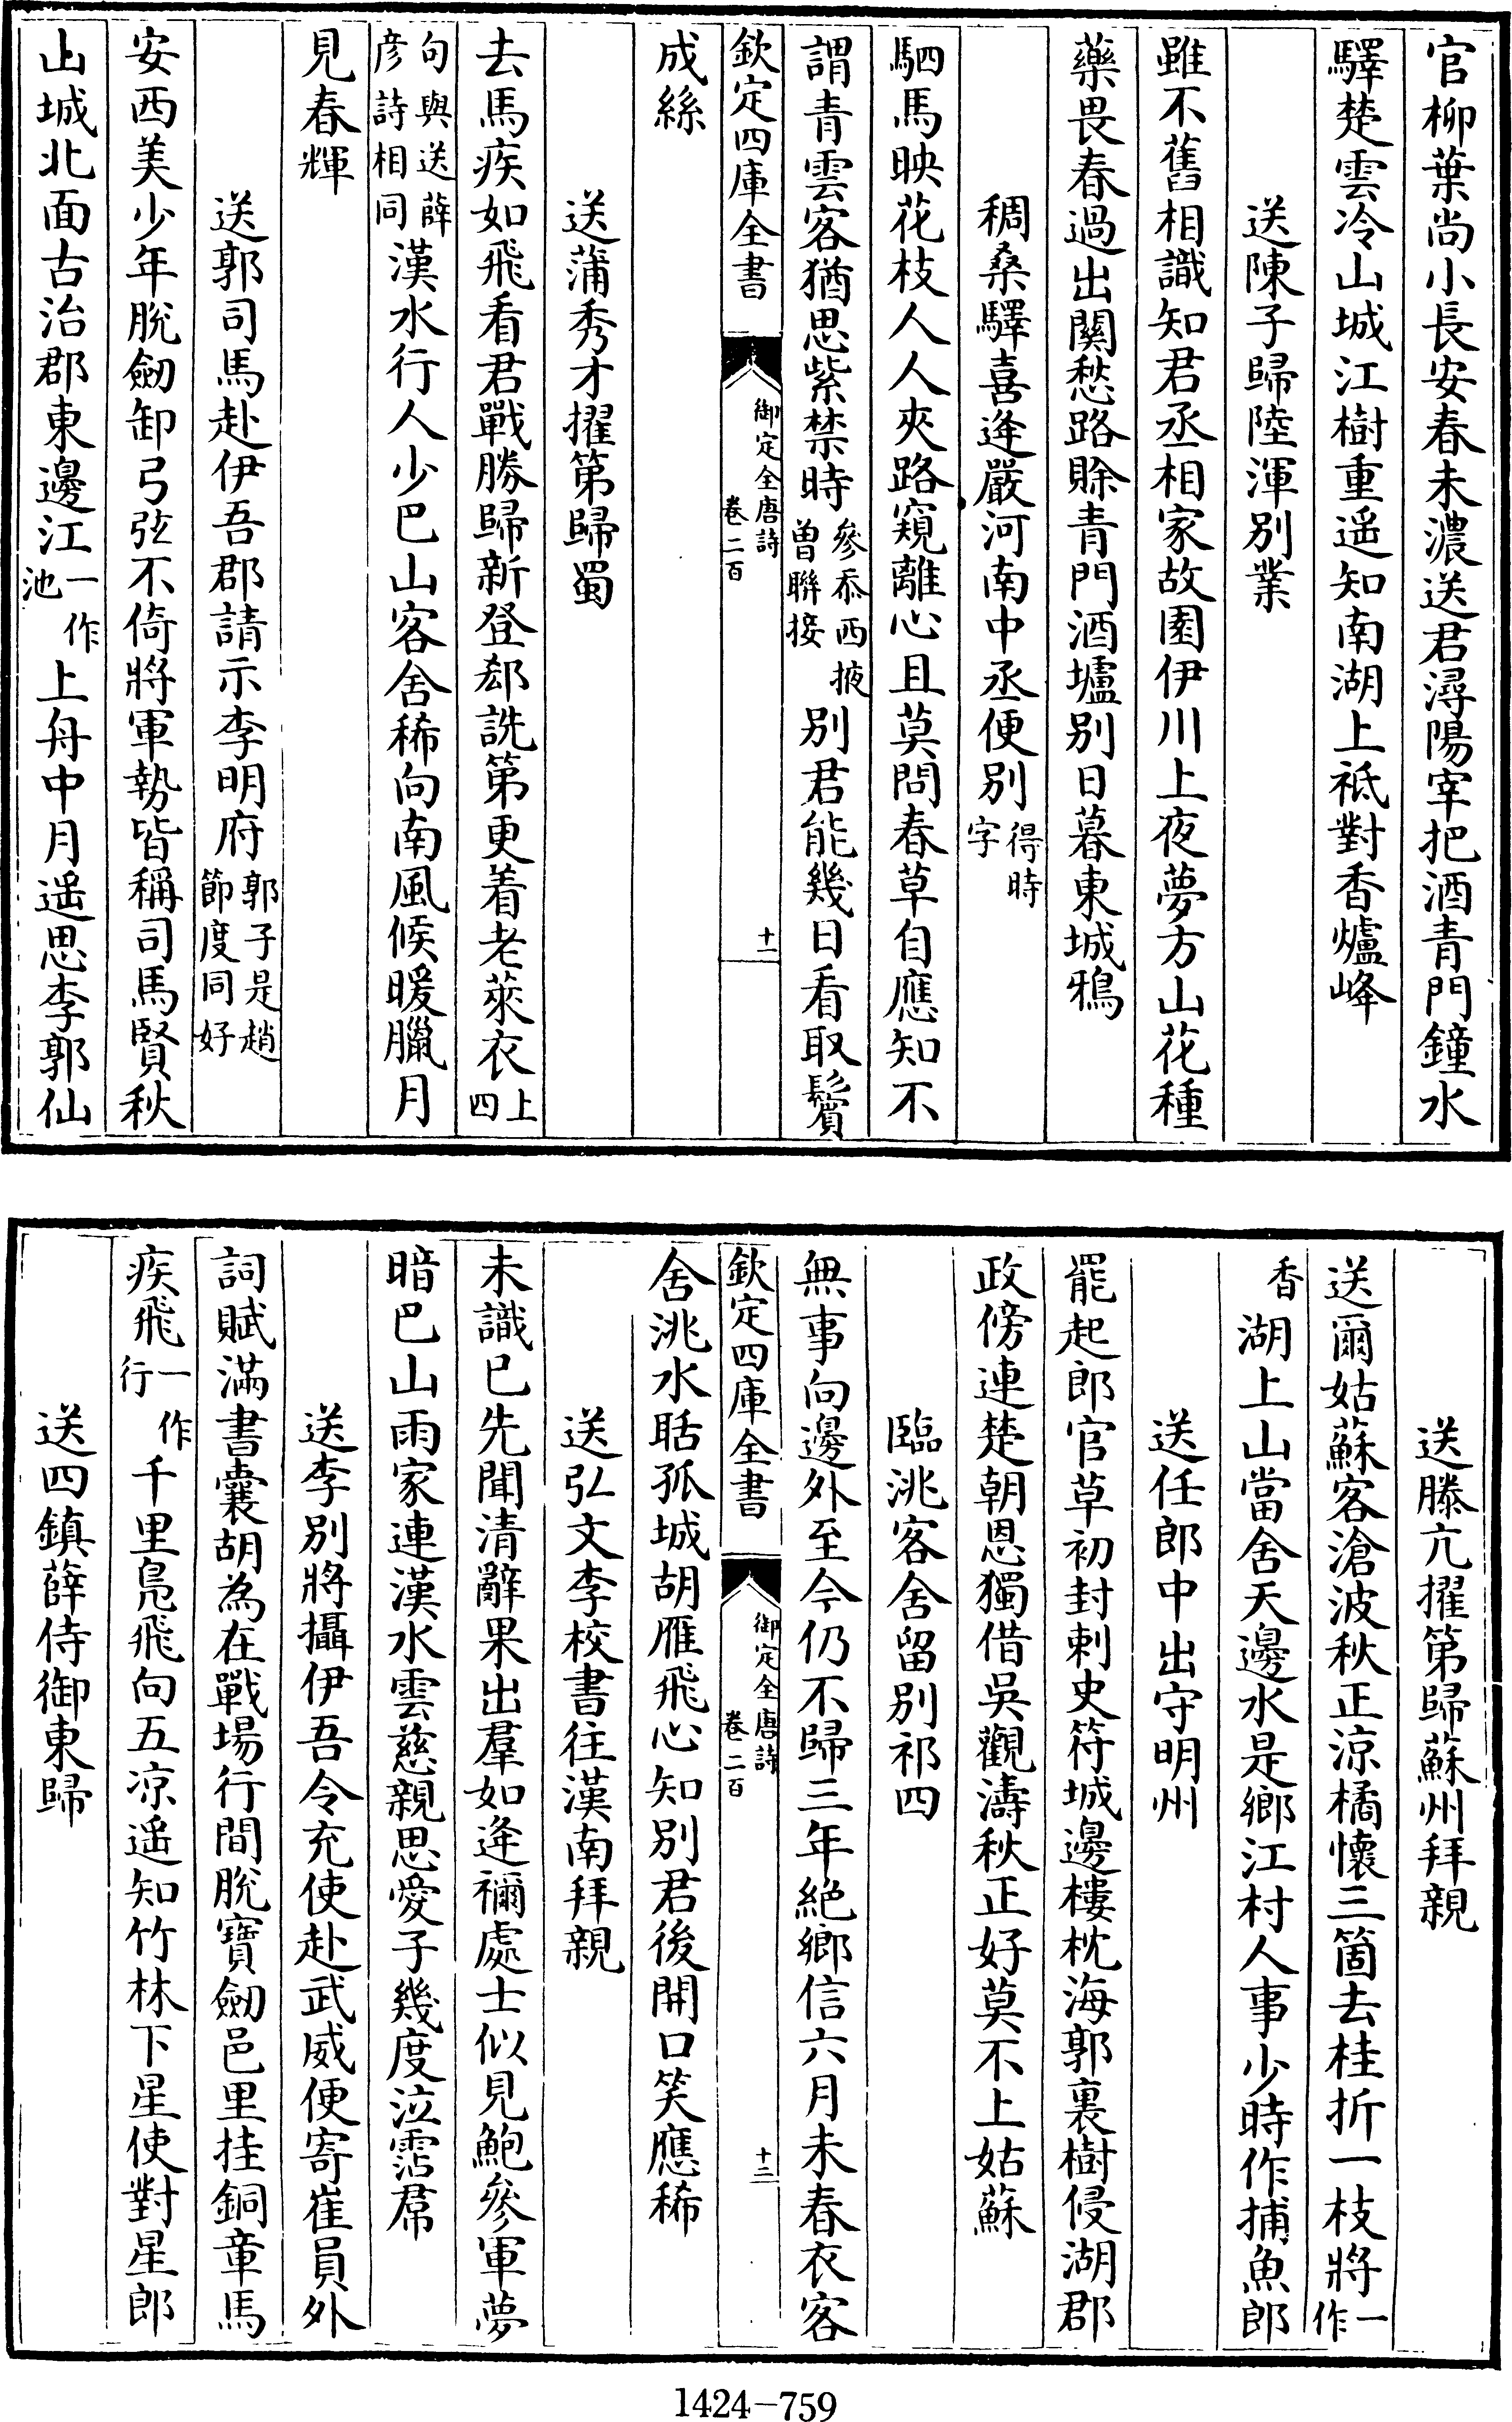 官柳葉尚小長安春未濃送君潯陽宰把酒青門鐘水
驛楚雲冷山城江樹重遥知南湖上袛對香爐峰
送陳子歸陸渾别業
雖不舊相識知君丞相家故園伊川上夜夢方山花種
藥畏春過出關愁路賒青門酒壚别日暮東城鴉
稠桑驛喜逢嚴河南中丞便别得時字
駟馬映花枝人人夾路窺離心且莫問春草自應知不
謂青雲客猶思紫禁時參忝西掖曽聯接别君能幾日看取鬢
欽定四庫全書
御定全唐詩
卷二百
十一
成絲
送蒲秀才擢第歸蜀
去馬疾如飛看君戰勝歸新登郄詵第更着老萊衣上四
句與送薛彦詩相同漢水行人少巴山客舍稀向南風候暖臘月
見春輝
送郭司馬赴伊吾郡請示李明府郭子是趙節度同好
安西美少年脫劒卸弓弦不倚將軍勢皆稱司馬賢秋
山城北面古治郡東邊江一作池上舟中月遥思李郭仙
送滕亢擢第歸蘇州拜親
送爾姑蘇客滄波秋正涼橘懷三箇去桂折一枝將一作
香湖上山當舍天邊水是鄉江村人事少時作捕魚郎
送任郎中出守明州
罷起郎官草初封刺史符城邊樓枕海郭裏樹侵湖郡
政傍連楚朝恩獨借吳觀濤秋正好莫不上姑蘇
臨洮客舍留别祁四
無事向邊外至今仍不歸三年絶鄉信六月未春衣客
欽定四庫全書
御定全唐詩
卷二百
十二
舍洮水聒孤城胡雁飛心知别君後開口笑應稀
送弘文李校書往漢南拜親
未識已先聞清辭果出羣如逢禰處士似見鮑參軍夢
暗巴山雨家連漢水雲慈親思愛子幾度泣霑帬
送李别將攝伊吾令充使赴武威便寄崔員外
詞賦滿書囊胡為在戰場行間脫寶劒邑里挂銅章馬
疾飛一作行千里鳧飛向五涼遥知竹林下星使對星郎
送四鎮薛侍御東歸
1424-759